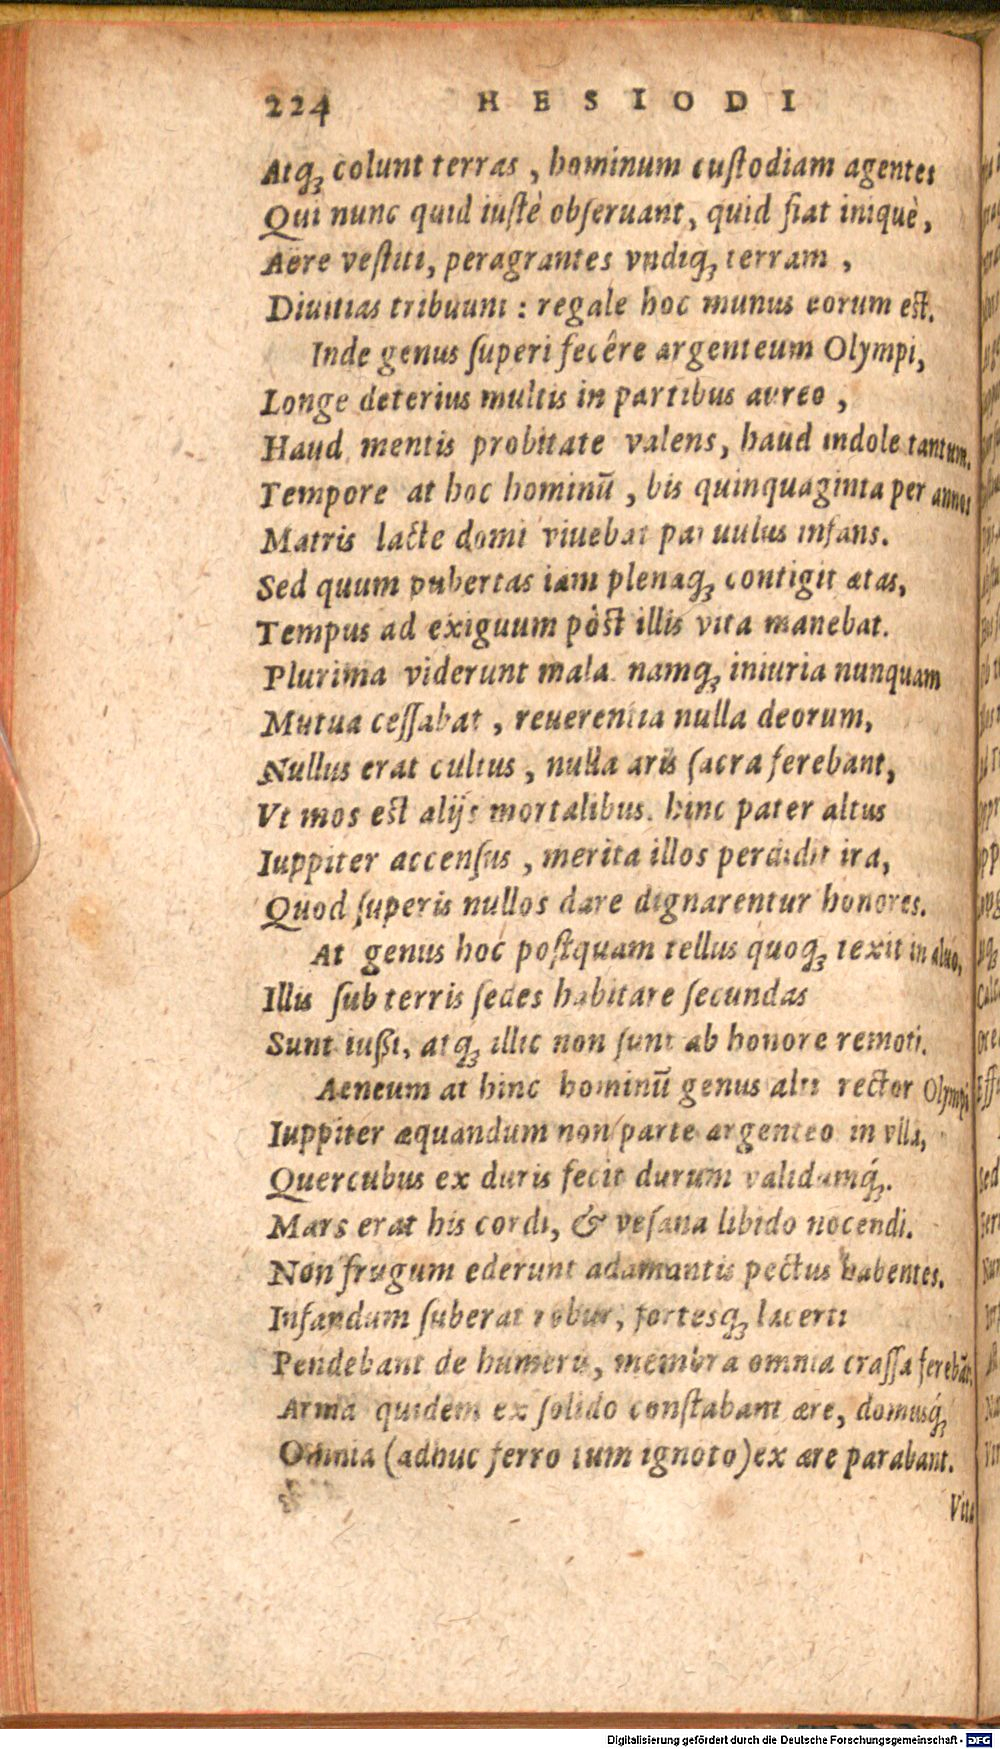 224 HESIODI
Atq; colunt terras, hominum custodiam agentes
Qui nunc quid iustè obseruant, quid fiat iniquè,
Aëre vestiti, peragrantes vndiq; terram,
Diuitias tribuunt: regale hoc munus eorum est.
Inde genus superi fecêre argenteum Olympi,
Longe deterius multis in partibus aureo,
Haud mentis probitate valens, haud indole tantum.
Tempore at hoc hominū, bis quinquaginta per annos
Matris lacte domi viuebat paruulus infans.
Sed quum pubertas iam plenaq; contigit ætas,
Tempus ad exiguum pòst illis vita manebat.
Plurima viderunt mala. namq; iniuria nunquam
Mutua cessabat, reuerentia nulla deorum,
Nullus erat cultus, nulla aris sacra ferebant,
Vt mos est alijs mortalibus. hinc pater altus
Iuppiter accensus, merita illos perdidit ira,
Quod superis nullos dare dignarentur honores.
At genus hoc postquam tellus quoq; texit in aluo,
Illis sub terris sedes habitare secundas
Sunt iussi, atq; illic non sunt ab honore remoti.
Aeneum at hinc hominū genus alti rector Olympi
Iuppiter æquandum non parte argenteo in vlla,
Quercubus ex duris fecit durum validumq́;.
Mars erat his cordi, & vesana libido nocendi.
Non frugum ederunt adamantis pectus habentes.
Infandum suberat robur, fortesq; lacerti
Pendebant de humeris, membra omnia crassa ferebāt.
Arma quidem ex solido constabant ære, domusq́;
Omnia (adhuc ferro tum ignoto) ex ære parabant.
Vita
Digitalisierung gefördert durch die Deutsche Forschungsgemeinschaft - DFG